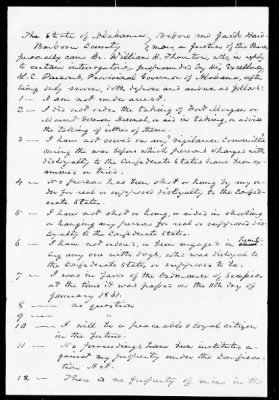 The State of Alabama, Before me Jacob
Barbour County } a Justice of the Peace
personally came Dr. William H. Thornton, who, in reply
to certain interrogatories, propounded by his Excellency
L. E. Parsons, Provisional Governor of Alabama, after
being duly sworn, doth depose and answer as follows:
1 — I am not under arrest.
2 — I did not order the taking of Fort Morgan or
Mount Vernon Arsenal, or aid in taking, or advise
the taking of either of them.
3 — I have not served on any "Vigilance Committee"
during the war before which persons charged with
disloyalty to the Confederate States have been ex-
amined or tried.
4 — No person has been shot or hung by my or-
der for real or supposed disloyalty to the Confed-
erate States.
5 — I have not shot or hung, or aided in shooting
or hanging any person for real or supposed dis-
loyalty to the Confederate States.
6 — I have not ordered, or been engaged in hunt-
ing any one with dogs, who was disloyal to
the Confederate States or supposed to be.
7 — I was in favor of the Ordinance of Secession
at the time it was passed on the 11th day of
January 1861.
8 — no question
9 — "
10 — I will be a peaceable & loyal citizen
in the future.
11 — No proceedings have been instituted a-
gainst my property under the Confisca-
tion Act.
12 — There is no property of mine in the